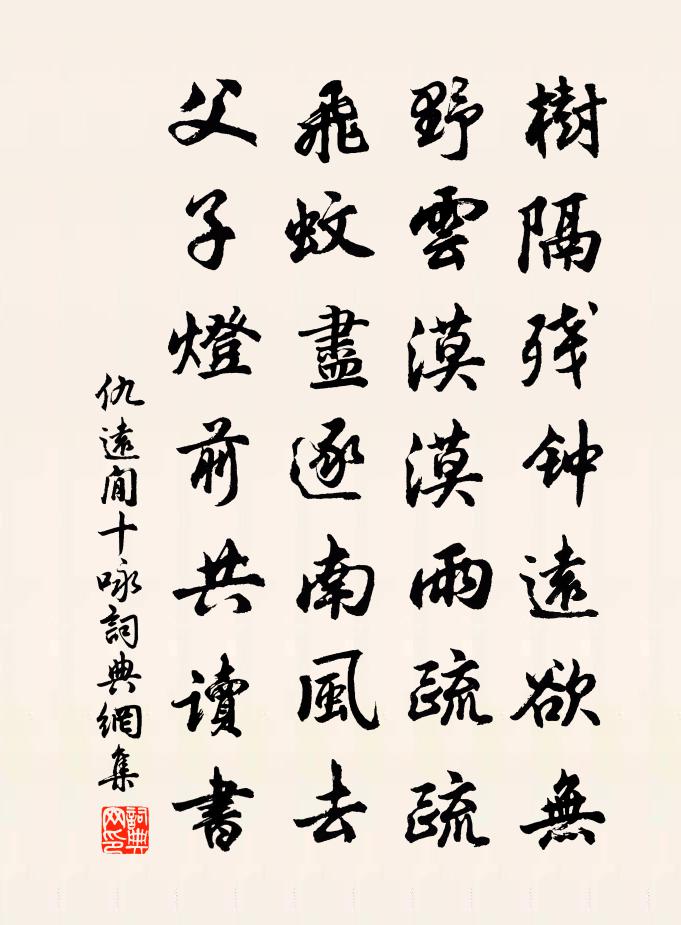 樹隔残钟遠欲無
野雲漠漠雨疏疏
飛蚊盡逐南風去
父子燈前共讀書
仇遠閒十咏詞典網集
詞典
网印